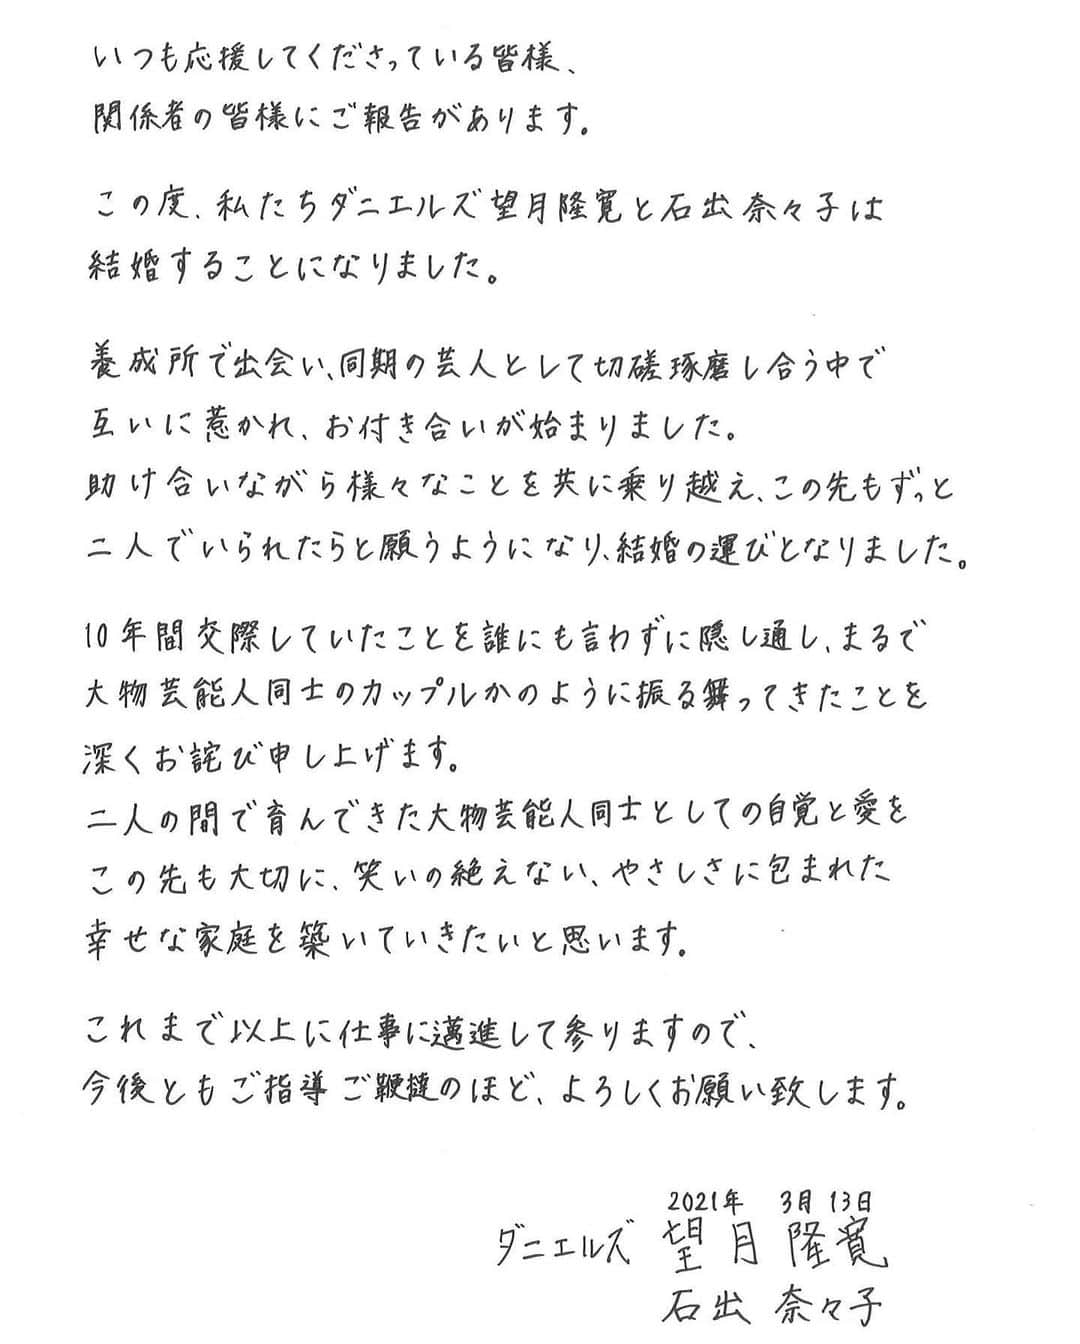 いつも応援してくださっている皆様、
関係者の皆様にご報告があります。
この度、私たちダニエルズ望月隆寛と石出奈々子は
結婚することになりました。
養成所で出会い、同期の芸人として切磋琢磨し合う中で
互いに惹かれ、お付き合いが始まりました。
助け合いながら様々なことを共に乗り越え、この先もずっと
二人でいられたらと願うようになり、結婚の運びとなりました。
10年間交際していたことを誰にも言わずに隠し通し、まるで
大物芸能人同士のカップルかのように振る舞ってきたことを
深くお詫び申し上げます。
二人の間で育んできた大物芸能人同士としての自覚と愛を
この先も大切に、笑いの絶えない、やさしさに包まれた
幸せな家庭を築いていきたいと思います。
これまで以上に仕事に邁進して参りますので、
今後ともご指導ご鞭撻のほど、よろしくお願い致します。
2021年 3月 13日
ダニエルズ 望月 隆寛
石出 奈々子